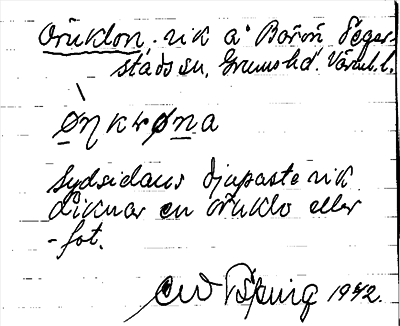 Öruklon, vik av Borön Seger-
stads sn, Grums hd. Värml. l.
Ønkrøna
Sydsidans djupaste vik
Liknar en öruklo eller
-fot.
1942.